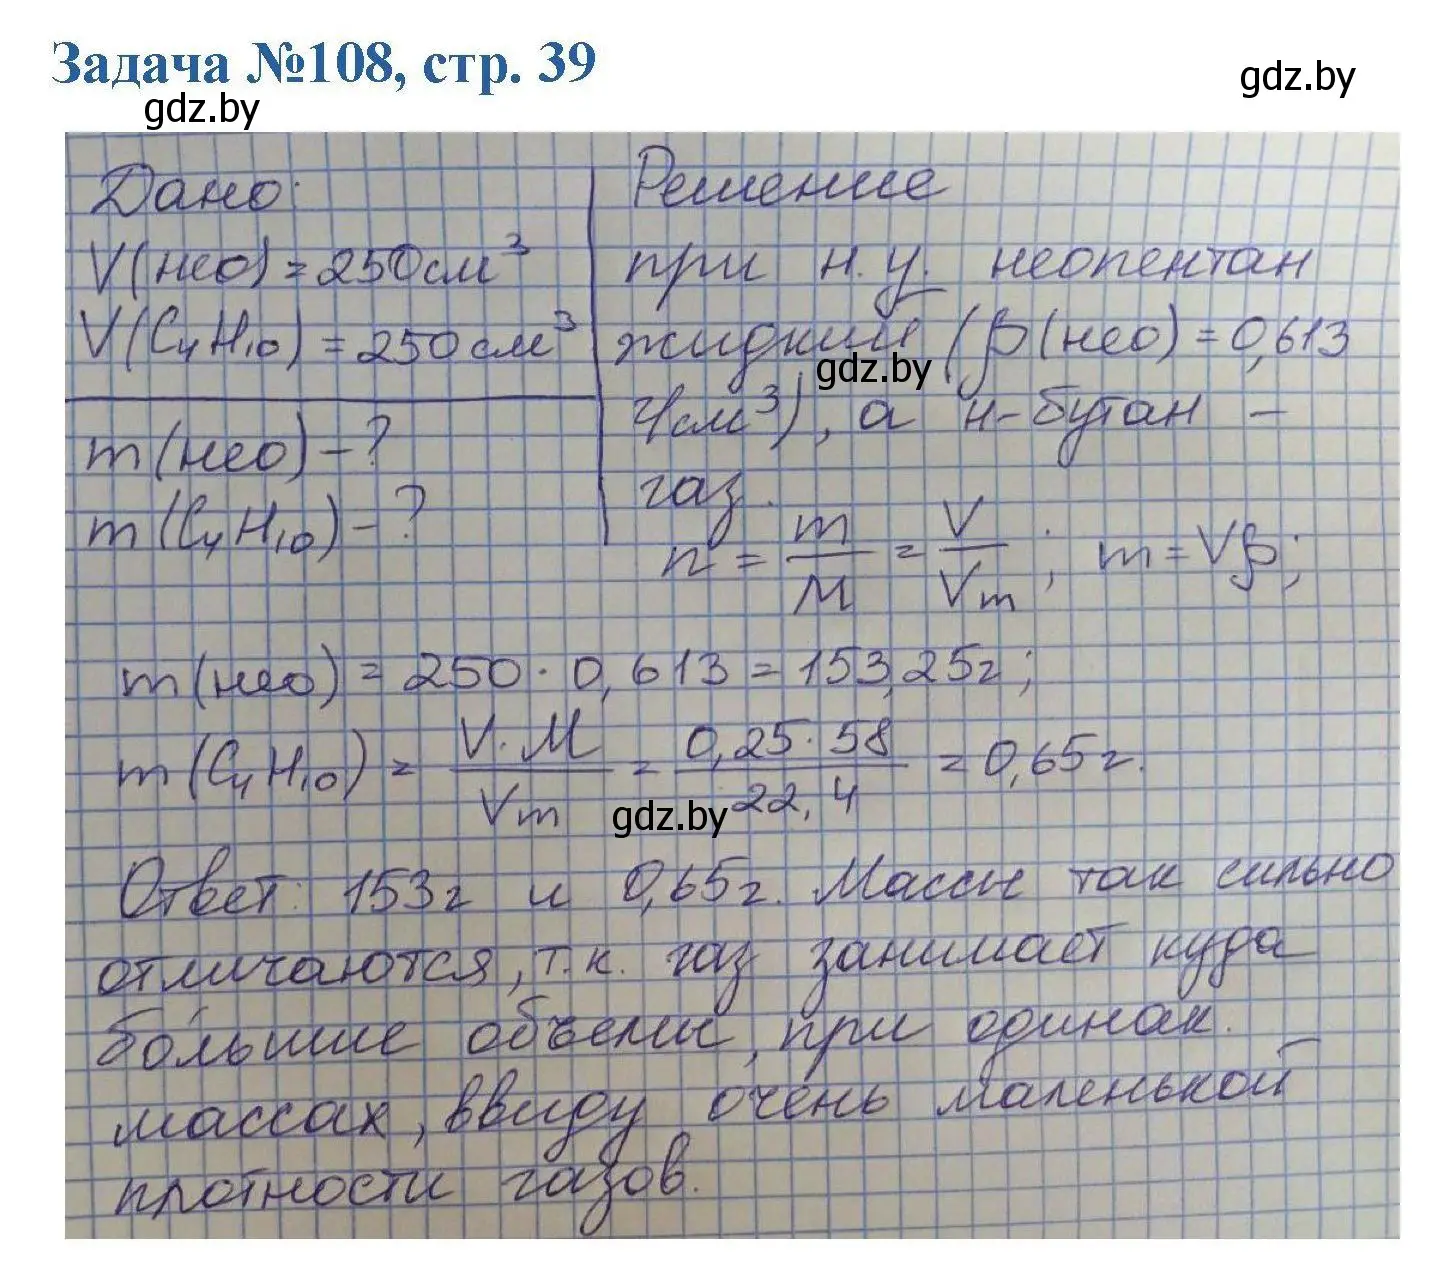 Задача №108, стр. 39
gdz.by
gdz.by
Дано:
V(нео) = 250 см³
V(C₄H₁₀) = 250 см³
m(нео) - ?
m(C₄H₁₀) - ?
Решение
при н.у. неопентан
жидкий (ρ(нео) = 0,613
gdz.by
г/см³), а н-бутан -
газ.
n = m/M = V/Vm; m = Vρ;
m(нео) = 250 · 0,613 = 153,25г;
m(C₄H₁₀) = V·M/Vm = 0,25·58/22,4 = 0,65г.
gdz.by
Ответ: 153г и 0,65г. Массы так сильно
отличаются, т.к. газ занимает куда
бо́льшие объемы, при одинак.
массах, ввиду очень маленькой
плотности газов.